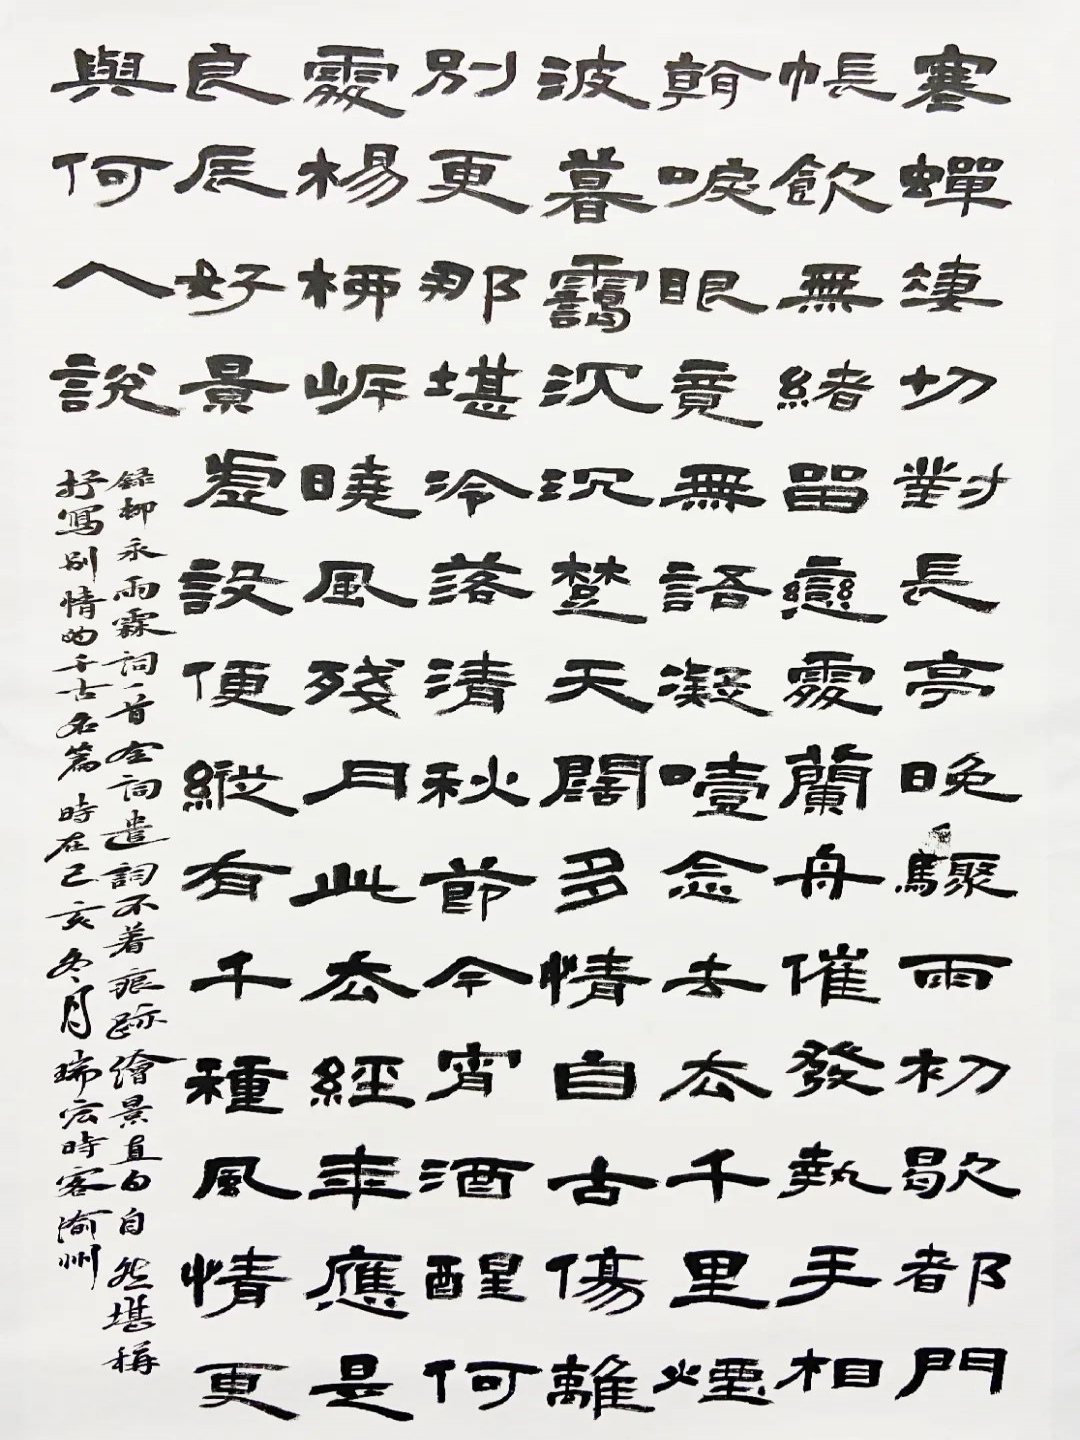 寒蟬淒切對長亭晚驟雨初歇都門
帳飲無緒留戀處蘭舟催發執手相
看唳眼竟無語凝噎念去去千里煙
波暮靄沉沉楚天闊多情自古傷離
別更那堪冷落清秋節今宵酒醒何
處楊柳岸曉風殘月此去經年應是
良辰好景虛設便縱有千種風情更
與何人說
錄柳永雨霖詞一首全詞遣詞不着痕跡繪景直白自然堪稱
抒寫別情的千古名篇時在己亥冬月瑞宏時客渝州